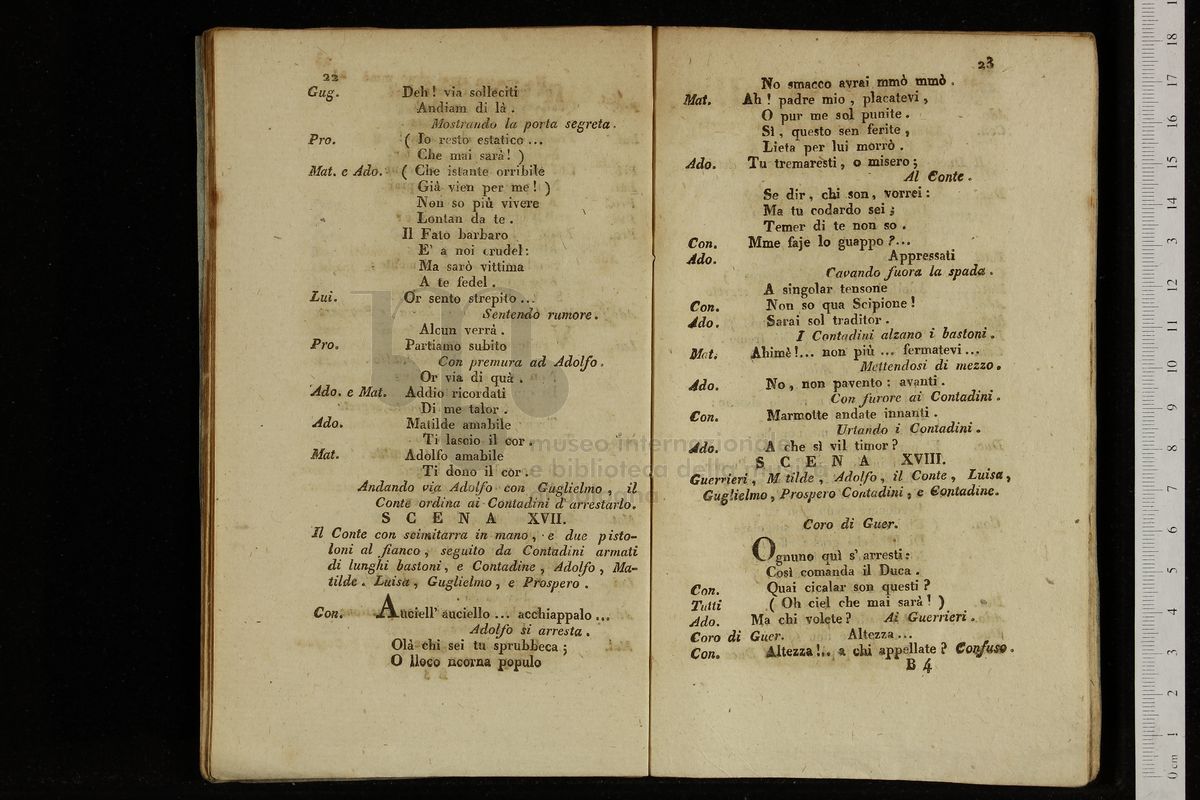 22
Gug. Deh! via solleciti
Andiam di là.
Mostrando la porta segreta.
Pro. ( Io resto estatico ...
Che mai sarà! )
Mat. e Ado. ( Che istante orribile
Già vien per me! )
Non so più vivere
Lontan da te.
Il Fato barbaro
E' a noi crudel:
Ma sarò vittima
A te fedel.
Lui. Or sento strepito ...
Sentendo rumore.
Alcun verrà.
Pro. Partiamo subito
Con premura ad Adolfo.
Or via di quà.
Ado. e Mat. Addio ricordati
Di me talor.
Ado. Matilde amabile
Ti lascio il cor.
Mat. Adolfo amabile
Ti dono il cor.
Andando via Adolfo con Guglielmo, il
Conte ordina ai Contadini d'arrestarlo.
SCENA XVII.
Il Conte con scimitarra in mano, e due pisto-
loni al fianco, seguito da Contadini armati
di lunghi bastoni, e Contadine, Adolfo, Ma-
tilde. Luisa, Guglielmo, e Prospero.
Con. Auciell' auciello ... acchiappalo ...
Adolfo si arresta.
Olà chi sei tu sprubbeca;
O lloco ncorna populo
23
No smacco avrai mmò mmò.
Mat. Ah! padre mio, placatevi,
O pur me sol punite.
Sì, questo sen ferite,
Lieta per lui morrò.
Ado. Tu tremaresti, o misero;
Al Conte.
Se dir, chi son, vorrei:
Ma tu codardo sei;
Temer di te non so.
Con. Mme faje lo guappo?...
Ado. Appressati
Cavando fuora la spada.
A singolar tensone
Con. Non so qua Scipione!
Ado. Sarai sol traditor.
I Contadini alzano i bastoni.
Mat. Ahimè!... non più ... fermatevi ...
Mettendosi di mezzo.
Ado. No, non pavento: avanti.
Con furore ai Contadini.
Con. Marmotte andate innanti.
Urtando i Contadini.
Ado. A che sì vil timor?
SCENA XVIII.
Guerrieri, M tilde, Adolfo, il Conte, Luisa,
Guglielmo, Prospero Contadini, e Contadine.
Coro di Guer.
Ognuno quì s'arresti:
Così comanda il Duca.
Con. Quai cicalar son questi?
Tutti ( Oh ciel che mai sarà! )
Ado. Ma chi volete? Ai Guerrieri.
Coro di Guer. Altezza ...
Con. Altezza!.. a chi appellate? Confuso.
B 4
museo internazionale
e biblioteca della musica
0 cm 1 2 3 4 5 6 7 8 9 10 11 12 13 14 15 16 17 18